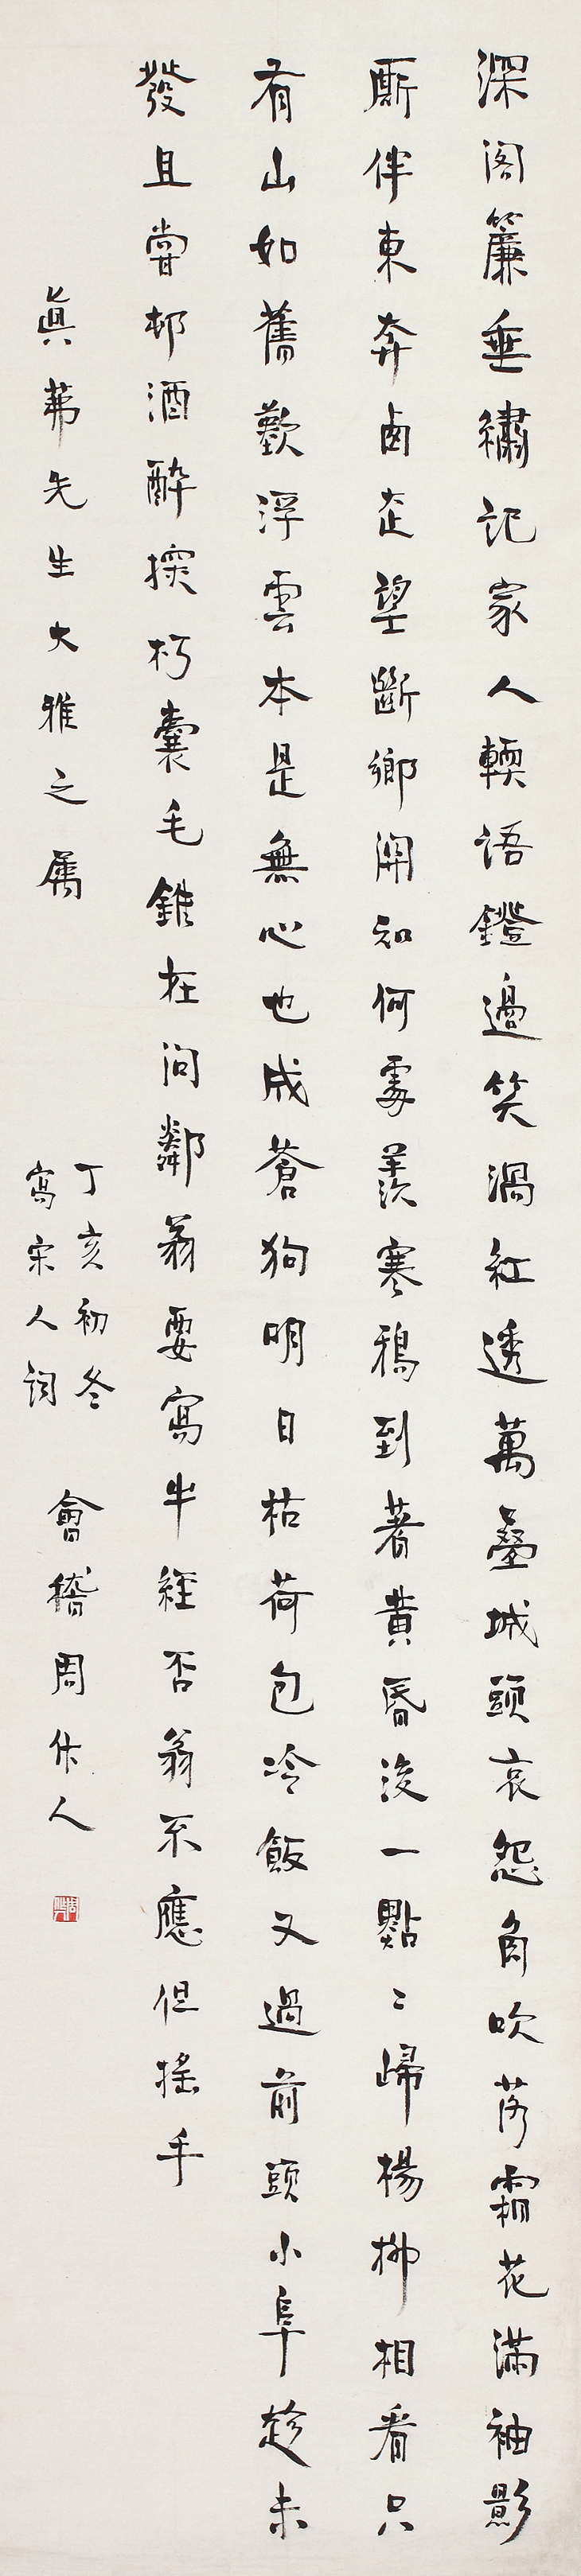 深阁簾垂繡記家人輭語鐙邊笑渦紅透萬疊城頭哀怨角吹落霜花滿袖影
厮伴東奔西走望斷鄉關知何處羨寒鴉到著黃昏後一點〻歸楊柳相看只
有山如舊歎浮雲本是無心也成蒼狗明日枯荷包冷飯又過前頭小阜趁未
發且嘗邨酒醉探朽囊毛錐在問鄰翁要寫牛經否翁不應但搖手
眞茀先生大雅之属
丁亥初冬
寫宋人詞
會稽周作人